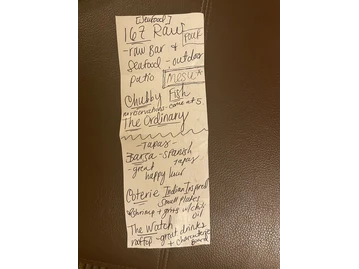 [Seafood]
167 Raw
- raw Bar &
Seafood - outdoor
patio
Chubby Fish
come at 5.
The Ordinary
- Tapas -
Barsa - Spanish
tapas
- great
happy hour
Coterie Indian Inspired
Small Plates
shrimp + grits w/chili
oil
The Watch
rooftop - great drinks
+ charcuterie
board